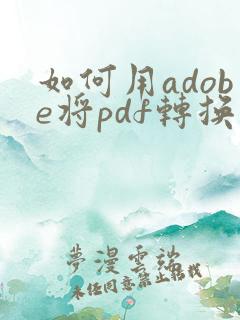 如何用adob
e将pdf轉换
夢漫雲端
未经同意禁止搬找